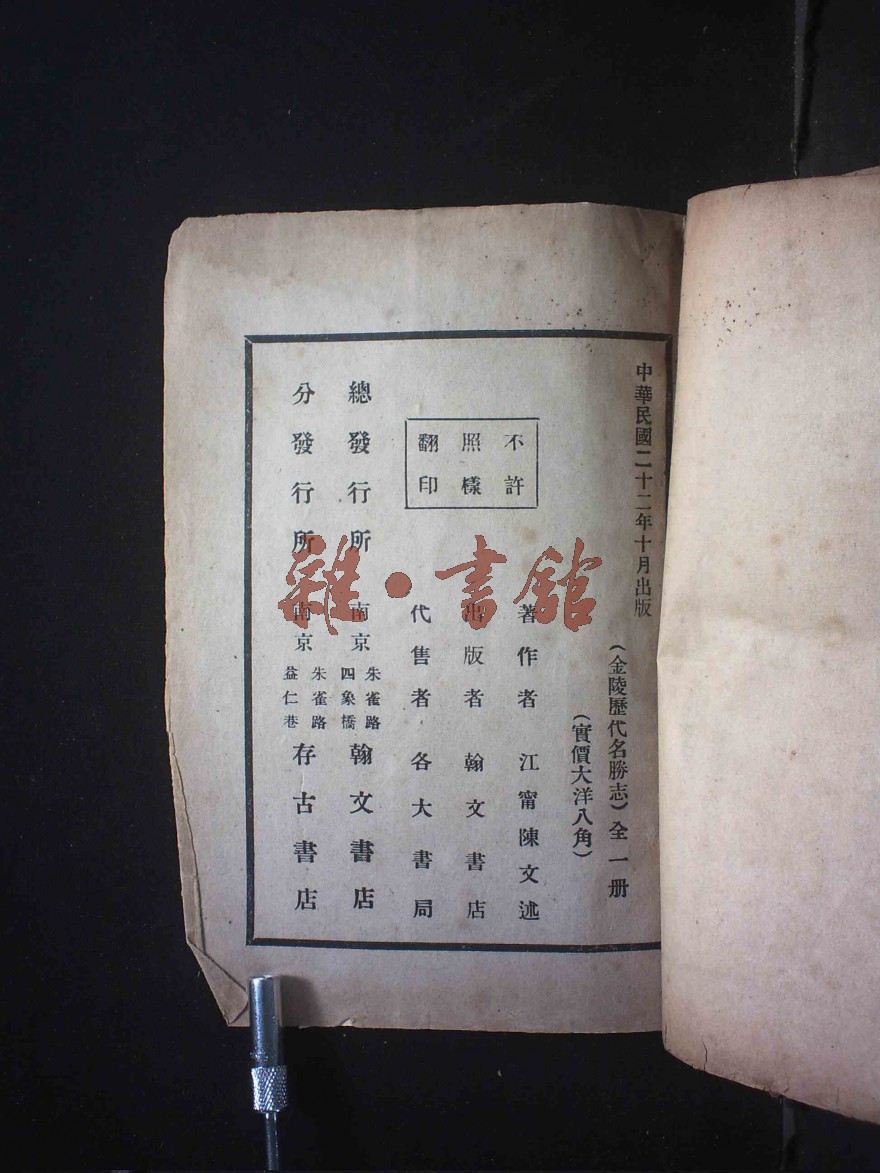 中華民國二十二年十月出版
（金陵歷代名勝志）全一册
（實價大洋八角）
著作者 江甯陳文述
不許
照樣
翻印
出版者 翰文書店
代售者 各大書局
總發行所 南京 朱雀路 四象橋 翰文書店
分發行所 南京 朱雀路 益仁巷 存古書店
雜·書館